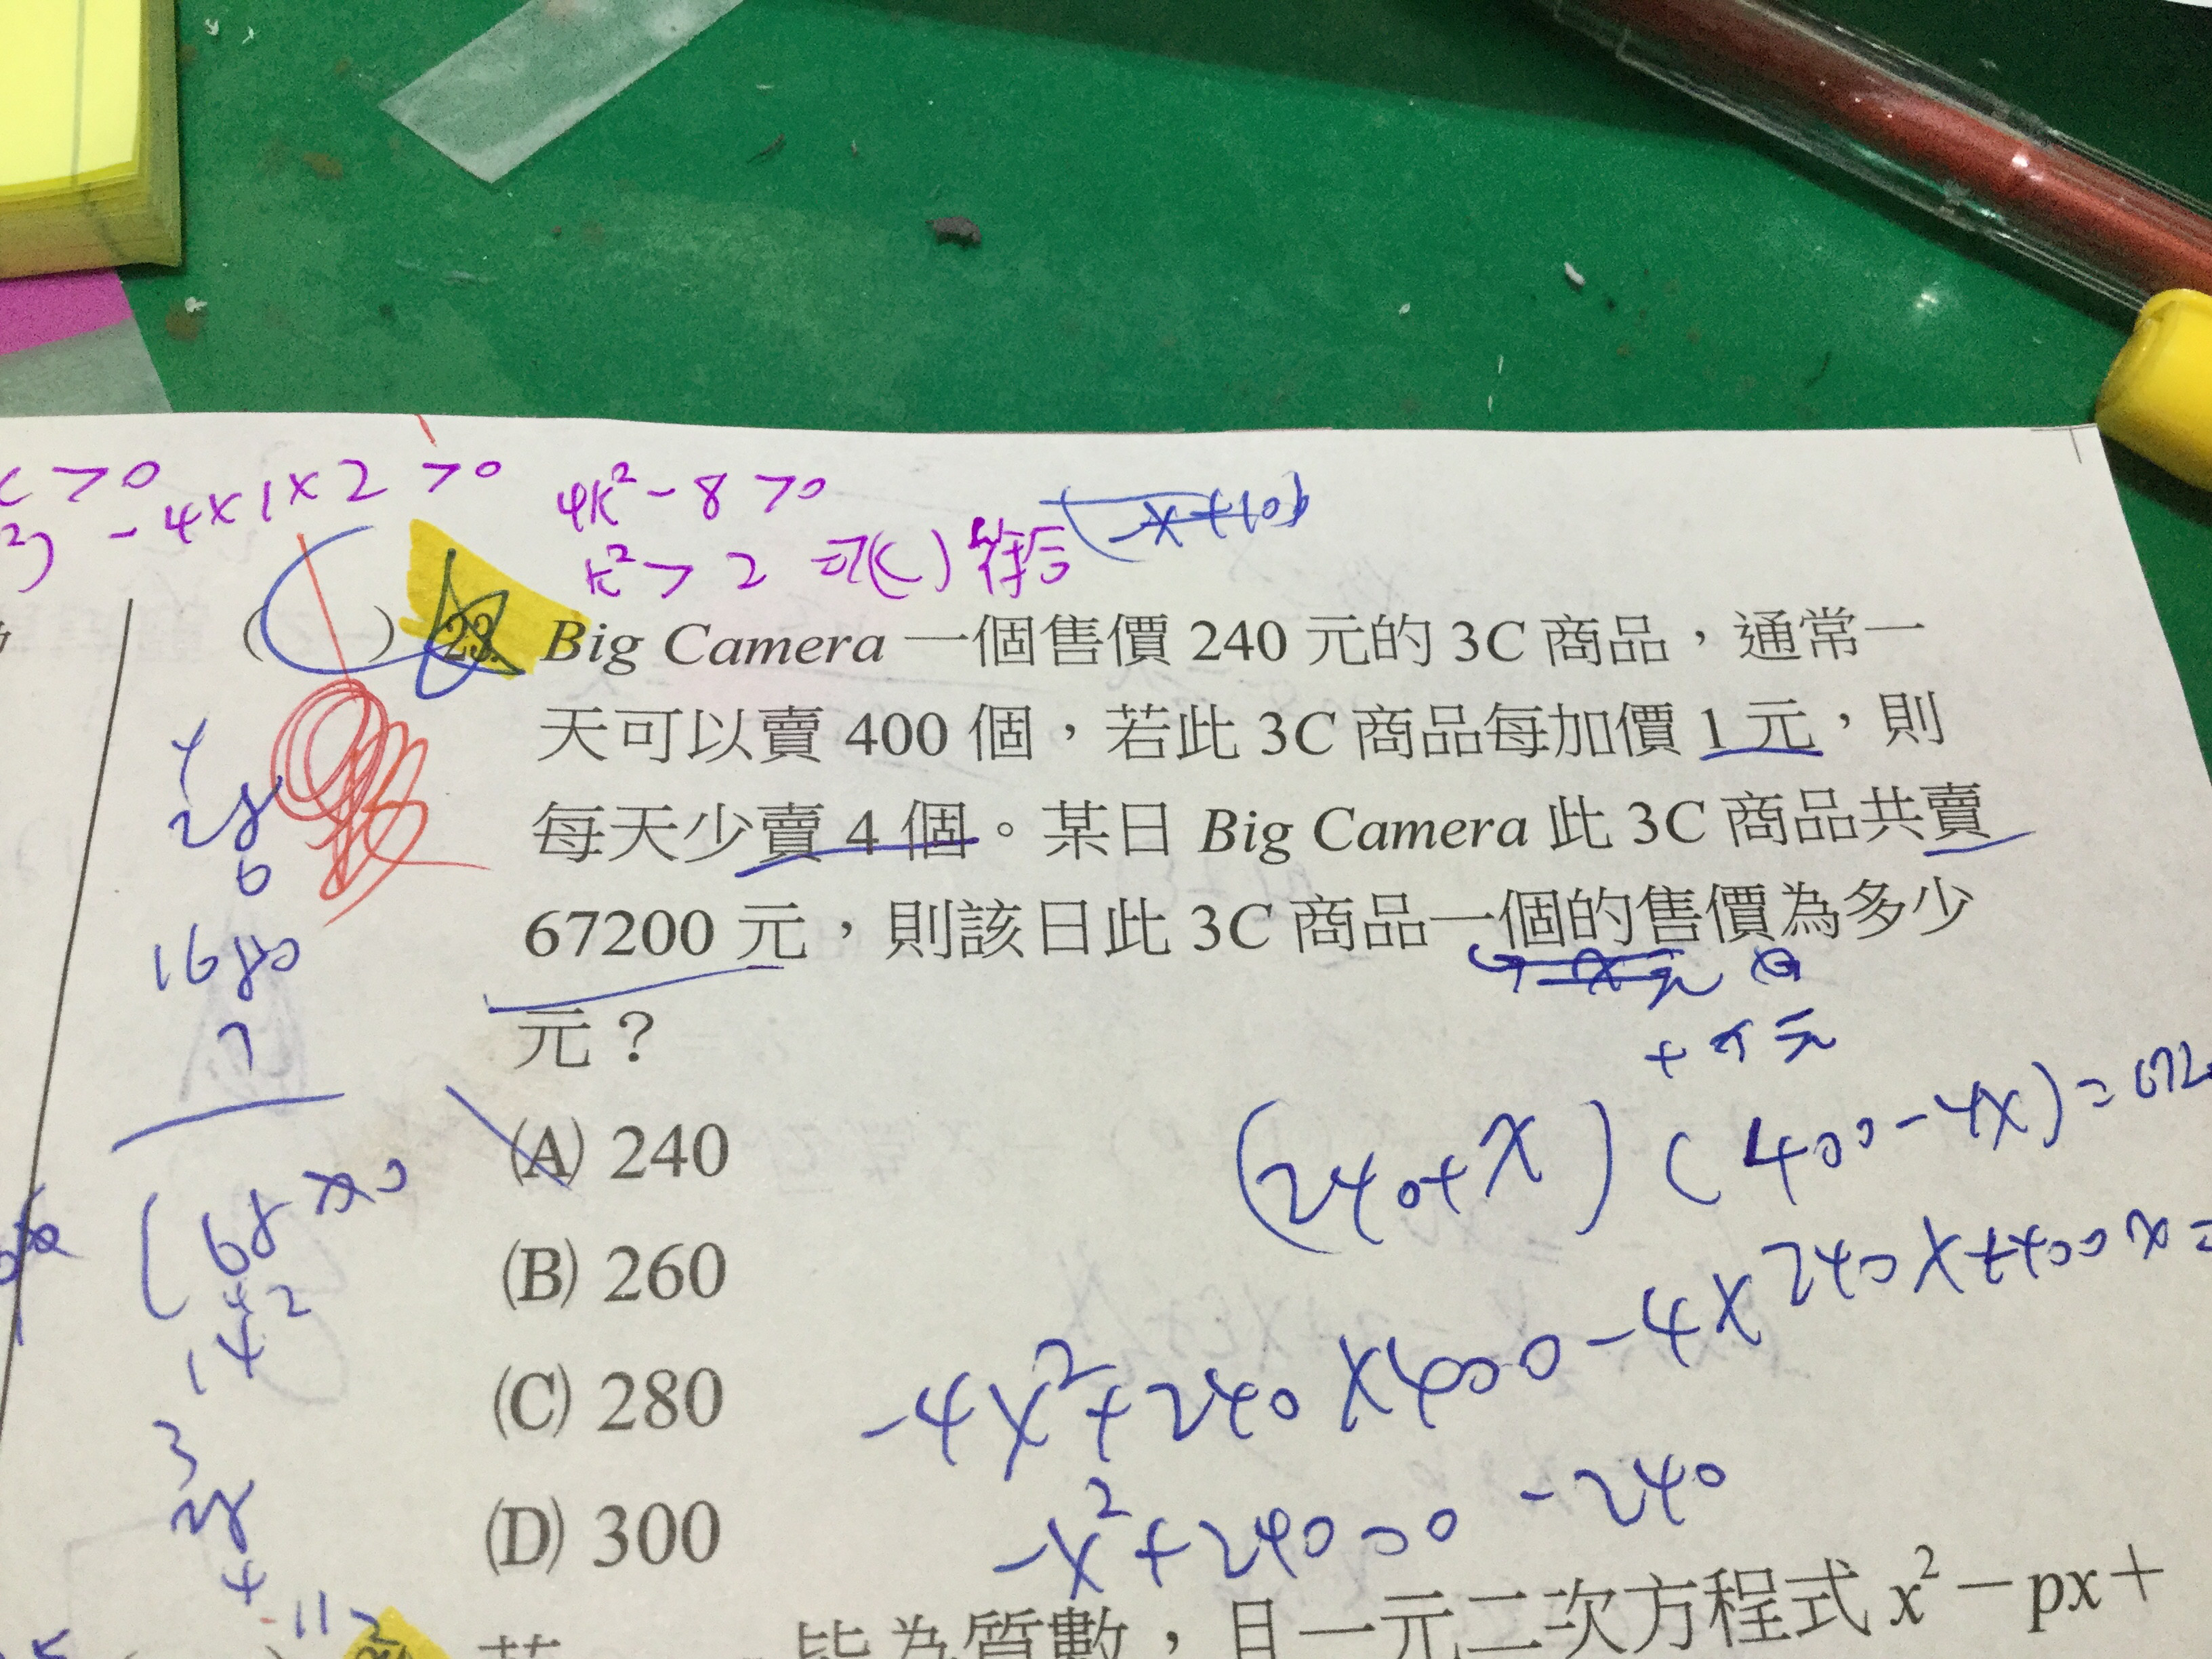 > 0
- 4 x 1 x 2 > 0
4k² - 8 > 0
k² > 2
( ) 23. Big Camera 一個售價 240 元的 3C 商品，通常一
天可以賣 400 個，若此 3C 商品每加價 1 元，則
每天少賣 4 個。某日 Big Camera 此 3C 商品共賣
67200 元，則該日此 3C 商品一個的售價為多少
元？
+ x 元
(A) 240
(B) 260
(C) 280
(D) 300
(240+x) (400-4x) = 672
-4x² + 240 x 400 - 4 x 240x + 400x =
-x² + 24000 - 240
28
6
1680
7
168
42
14
3
28
4
112
皆為質數，且一元二次方程式 x² － px＋